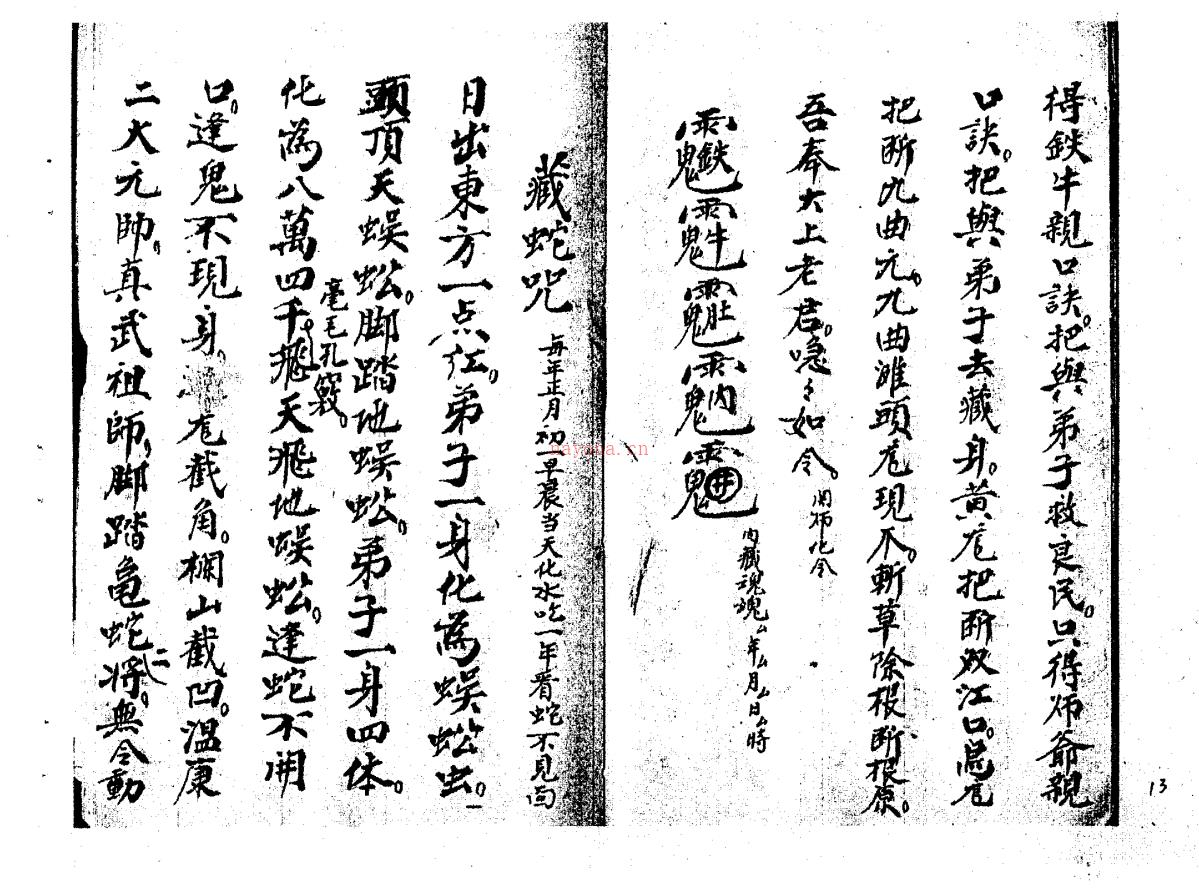 得鉄牛親口訣。把與弟子救良民。只得师爺親
口訣。把與弟子去藏身。黃
把断双江口。
把断九曲
九曲灘頭
現爪。斬草除根断根原。
吾奉太上老君。急々如令。
鉄
牛
肚
内
井
内藏魂魄厶年厶月厶日厶時
藏蛇咒
每年正月初一早晨当天化水吃一年看蛇不見面
日出東方一点红。弟子一身化為蜈蚣虫。一
頭頂天蜈蚣。脚踏地蜈蚣。弟子一身四体。
毫毛孔竅。
化為八萬四千飛天飛地蜈蚣。逢蛇不開
口。逢鬼不現身。
截角。欄山截凹。溫康
二大元帥。真武祖師。脚踏龟蛇二將。無令動
13